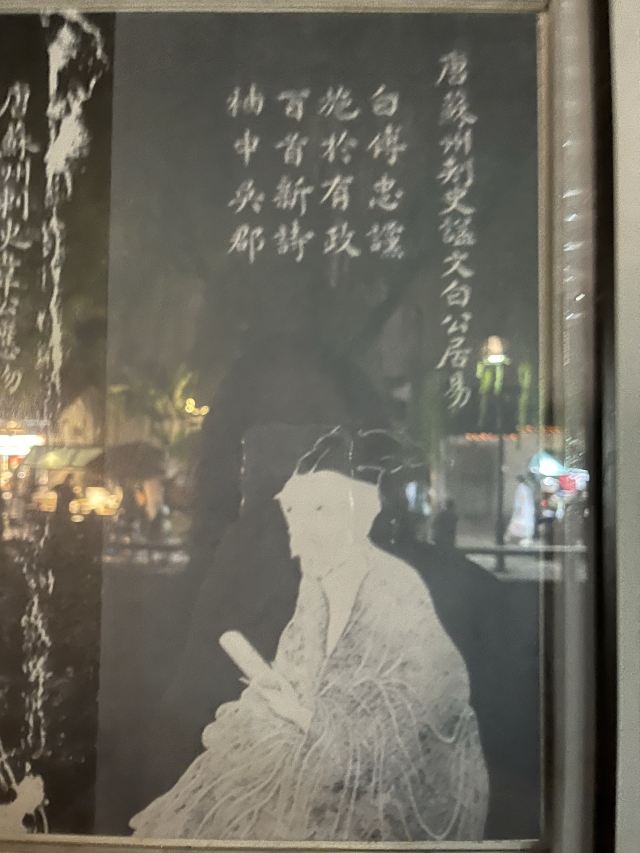 唐蘇州刺史謚文白公居易
白傅忠讜
施於有政
百首新詩
袖中吳郡
唐蘇州刺史韋公應物